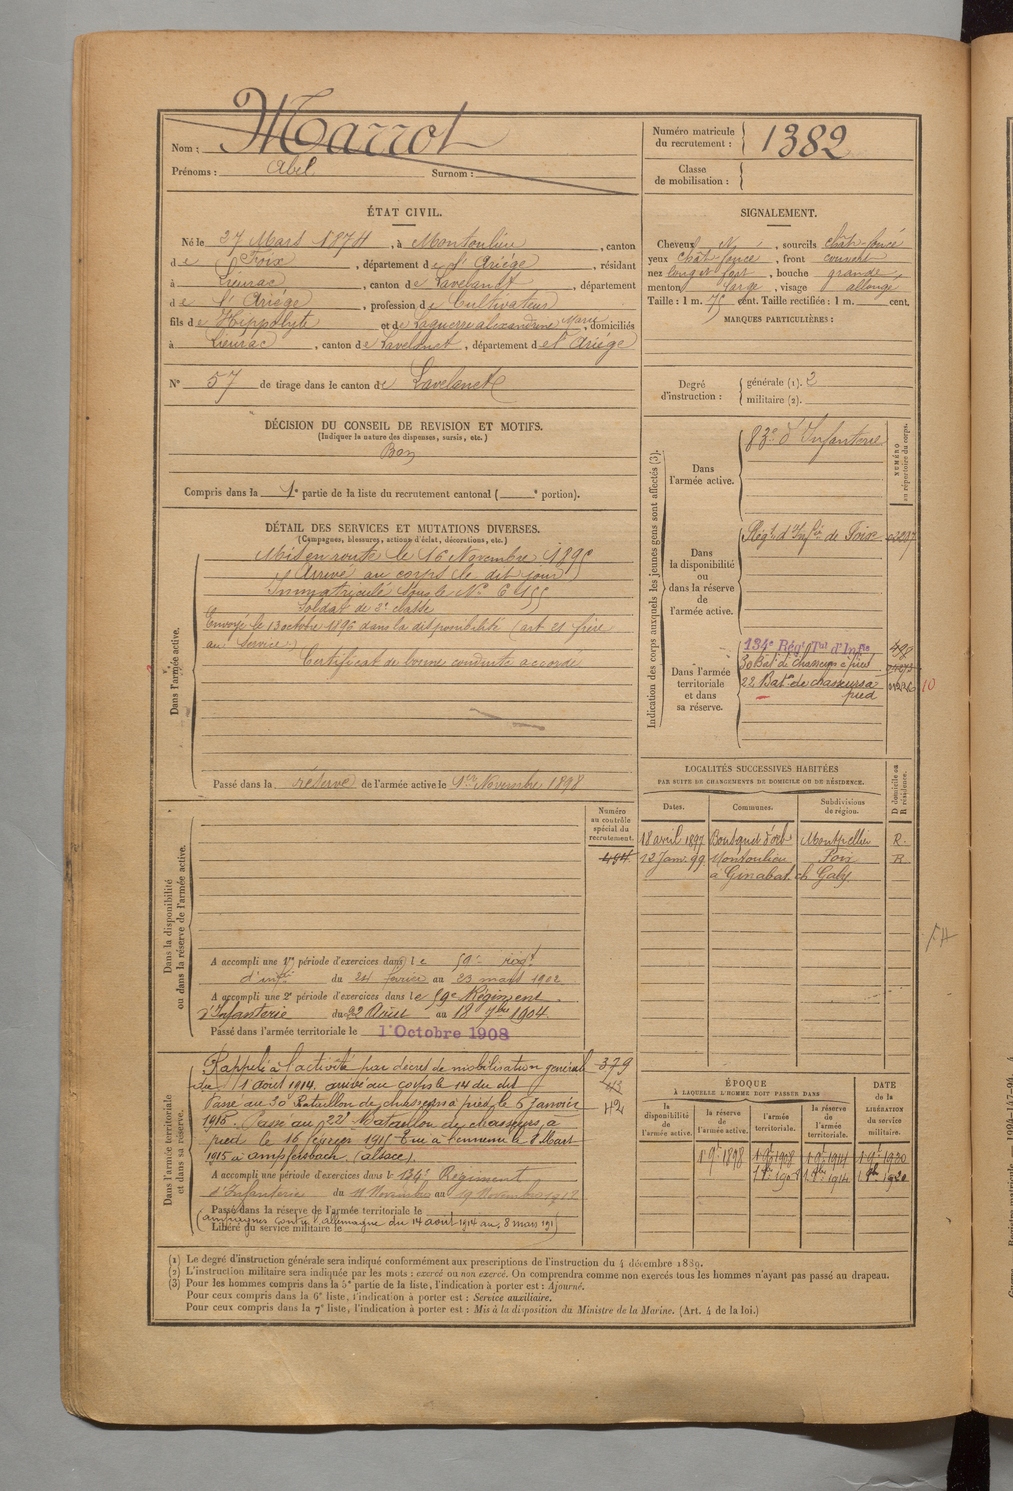 Nom : Marrot
Prénoms : Abel Surnom :
Numéro matricule du recrutement : 1382
Classe de mobilisation :
ÉTAT CIVIL.
Né le 27 Mars 1874, à Montoulieu, canton
de Foix, département de l'Ariège, résidant
à Lieurac, canton de Lavelanet, département
de l'Ariège, profession de Cultivateur
fils de Hippolyte et de Laguerre Alexandrine Marie, domiciliés
à Lieurac, canton de Lavelanet, département de l'Ariège
N° 57 de tirage dans le canton de Lavelanet
SIGNALEMENT.
Cheveux N, sourcils chât-foncé
yeux chât-foncé, front couvert
nez long et fort, bouche grande
menton large, visage allongé
Taille : 1 m. 75 cent. Taille rectifiée : 1 m. cent.
MARQUES PARTICULIÈRES :
Degré d'instruction : générale (1). 2
militaire (2).
DÉCISION DU CONSEIL DE REVISION ET MOTIFS.
(Indiquer la nature des dispenses, sursis, etc.)
Bon
Compris dans la 1e partie de la liste du recrutement cantonal ( e portion).
DÉTAIL DES SERVICES ET MUTATIONS DIVERSES.
(Campagnes, blessures, actions d'éclat, décorations, etc.)
Dans l'armée active.
Mis en route le 16 Novembre 1895
Arrivé au corps le dit jour
Immatriculé sous le N° 6455
Soldat de 2e classe
Envoyé le 13 octobre 1896 dans la disponibilité (art 21 frère
au service)
Certificat de bonne conduite accordé
Passé dans la réserve de l'armée active le 1er Novembre 1898
Indication des corps auxquels les jeunes gens sont affectés (3).
NUMÉRO au répertoire du corps.
Dans l'armée active.
83e d'Infanterie
Dans la disponibilité ou dans la réserve de l'armée active.
Régt d'Infie de Foix
Dans l'armée territoriale et dans sa réserve.
134e Régt Tal d'Infie 498
30 Bat. de chasseurs à pied
22 Bat. de chasseurs à
pied
10
LOCALITÉS SUCCESSIVES HABITÉES
PAR SUITE DE CHANGEMENTS DE DOMICILE OU DE RÉSIDENCE.
Dates. Communes. Subdivisions de région. D domicile ou R résidence.
18 avril 1897 Montpellier R.
12 Janv. 99 Montoulieu Foix R
à Ginabat ch Galy
Dans la disponibilité ou dans la réserve de l'armée active.
Numéro au contrôle spécial du recrutement.
494
A accompli une 1re période d'exercices dans le 59e régt
d'infie du 24 février au 23 mars 1902
A accompli une 2e période d'exercices dans le 59e Régiment
d'Infanterie du 22 Août au 18 7bre 1904.
Passé dans l'armée territoriale le 1er Octobre 1908
Dans l'armée territoriale et dans sa réserve.
Rappelé à l'activité par décret de mobilisation général 379
du 1 août 1914. arrivé au corps le 14 du dit
Passé au 30e Bataillon de chasseurs à pied le 6 Janvier 42
1915. Passé au 22e Bataillon de chasseurs à
pied le 16 février 1915 Tué à l'ennemi le 8 Mars
1915 à ampfersbach (alsace).
A accompli une période d'exercices dans le 134e Régiment
d'Infanterie du 11 Novembre au 19 Novembre 1912
Passé dans la réserve de l'armée territoriale le
(campagnes contre l'allemagne du 14 août 1914 au 8 mars 191)
Libéré du service militaire le
ÉPOQUE
À LAQUELLE L'HOMME DOIT PASSER DANS
la disponibilité de l'armée active. la réserve de l'armée active. l'armée territoriale. la réserve de l'armée territoriale.
DATE DE LA LIBÉRATION du service militaire.
1 9e 1898 1 9e 1908 1 9e 1914 1 9e 1920
(1) Le degré d'instruction générale sera indiqué conformément aux prescriptions de l'instruction du 4 décembre 1889.
(2) L'instruction militaire sera indiquée par les mots : exercé ou non exercé. On comprendra comme non exercés tous les hommes n'ayant pas passé au drapeau.
(3) Pour les hommes compris dans la 5e partie de la liste, l'indication à porter est : Ajourné.
Pour ceux compris dans la 6e liste, l'indication à porter est : Service auxiliaire.
Pour ceux compris dans la 7e liste, l'indication à porter est : Mis à la disposition du Ministre de la Marine. (Art. 4 de la loi.)